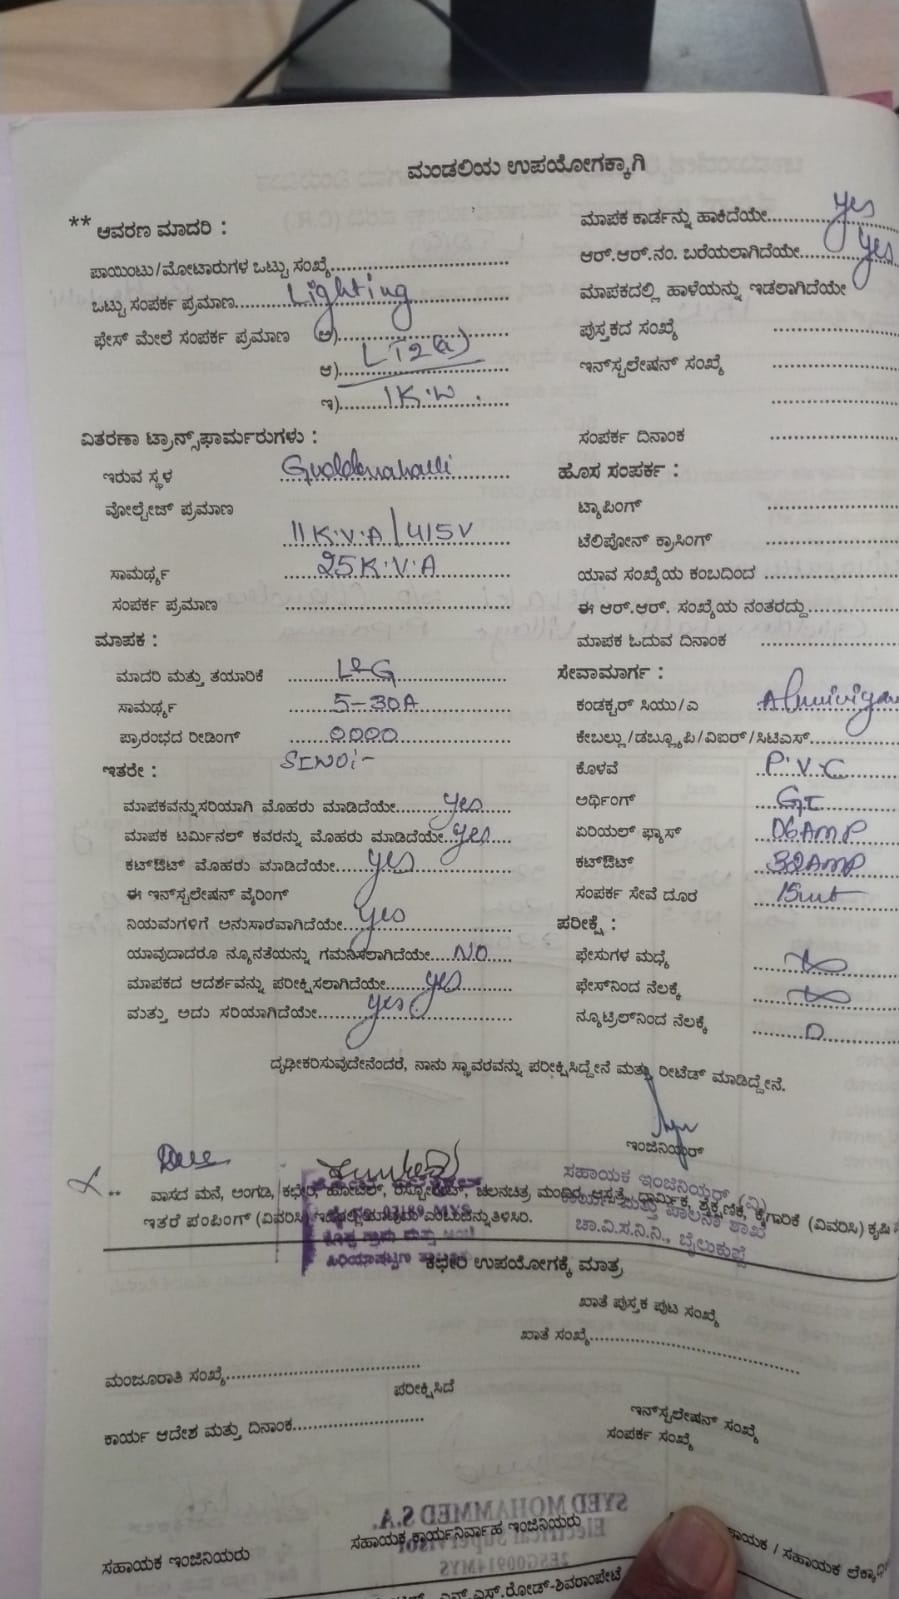 ಮಂಡಲಿಯ ಉಪಯೋಗಕ್ಕಾಗಿ
** ಆವರಣ ಮಾದರಿ :
ಪಾಯಿಂಟು/ಮೋಟಾರುಗಳ ಒಟ್ಟು ಸಂಖ್ಯೆ
ಒಟ್ಟು ಸಂಪರ್ಕ ಪ್ರಮಾಣ Lighting
ಫೇಸ್ ಮೇಲೆ ಸಂಪರ್ಕ ಪ್ರಮಾಣ ಅ)
ಆ) LT2(a)
ಇ) 1K.W.
ವಿತರಣಾ ಟ್ರಾನ್ಸ್‌ಫಾರ್ಮರುಗಳು :
ಇರುವ ಸ್ಥಳ Guddenahalli
ವೋಲ್ಟೇಜ್ ಪ್ರಮಾಣ
11K.V.A/415V
ಸಾಮರ್ಥ್ಯ 25K.V.A
ಸಂಪರ್ಕ ಪ್ರಮಾಣ
ಮಾಪಕ :
ಮಾದರಿ ಮತ್ತು ತಯಾರಿಕೆ L&G
ಸಾಮರ್ಥ್ಯ 5-30A
ಪ್ರಾರಂಭದ ರೀಡಿಂಗ್ 0000
ಇತರೇ : Sl No:-
ಮಾಪಕವನ್ನುಸರಿಯಾಗಿ ಮೊಹರು ಮಾಡಿದೆಯೇ yes
ಮಾಪಕ ಟರ್ಮಿನಲ್ ಕವರನ್ನು ಮೊಹರು ಮಾಡಿದೆಯೇ yes
ಕಟ್‌ಔಟ್ ಮೊಹರು ಮಾಡಿದೆಯೇ yes
ಈ ಇನ್‌ಸ್ಟಲೇಷನ್ ವೈರಿಂಗ್
ನಿಯಮಗಳಿಗೆ ಅನುಸಾರವಾಗಿದೆಯೇ yes
ಯಾವುದಾದರೂ ನ್ಯೂನತೆಯನ್ನು ಗಮನಿಸಲಾಗಿದೆಯೇ NO
ಮಾಪಕದ ಆದರ್ಶವನ್ನು ಪರೀಕ್ಷಿಸಲಾಗಿದೆಯೇ yes
ಮತ್ತು ಅದು ಸರಿಯಾಗಿದೆಯೇ yes
ಮಾಪಕ ಕಾರ್ಡನ್ನು ಹಾಕಿದೆಯೇ yes
ಆರ್.ಆರ್.ನಂ. ಬರೆಯಲಾಗಿದೆಯೇ yes
ಮಾಪಕದಲ್ಲಿ ಹಾಳೆಯನ್ನು ಇಡಲಾಗಿದೆಯೇ
ಪುಸ್ತಕದ ಸಂಖ್ಯೆ
ಇನ್‌ಸ್ಟಲೇಷನ್ ಸಂಖ್ಯೆ
ಸಂಪರ್ಕ ದಿನಾಂಕ
ಹೊಸ ಸಂಪರ್ಕ :
ಟ್ಯಾಪಿಂಗ್
ಟೆಲಿಪೋನ್ ಕ್ರಾಸಿಂಗ್
ಯಾವ ಸಂಖ್ಯೆಯ ಕಂಬದಿಂದ
ಈ ಆರ್.ಆರ್. ಸಂಖ್ಯೆಯ ನಂತರದ್ದು
ಮಾಪಕ ಓದುವ ದಿನಾಂಕ
ಸೇವಾಮಾರ್ಗ :
ಕಂಡಕ್ಟರ್ ಸಿಯು/ಎ
ಕೇಬಲ್ಲು/ಡಬ್ಲ್ಯೂಪಿ/ವಿಐರ್/ಸಿಟಿಎಸ್
ಕೊಳವೆ P.V.C
ಅರ್ಥಿಂಗ್ GI
ಏರಿಯಲ್ ಫ್ಯಾಸ್ 06AMP
ಕಟ್‌ಔಟ್ 32AMP
ಸಂಪರ್ಕ ಸೇವೆ ದೂರ 15mt
ಪರೀಕ್ಷೆ :
ಫೇಸುಗಳ ಮಧ್ಯೆ
ಫೇಸ್‌ನಿಂದ ನೆಲಕ್ಕೆ
ನ್ಯೂಟ್ರಲ್‌ನಿಂದ ನೆಲಕ್ಕೆ 0
ದೃಢೀಕರಿಸುವುದೇನೆಂದರೆ, ನಾನು ಸ್ಥಾವರವನ್ನು ಪರೀಕ್ಷಿಸಿದ್ದೇನೆ ಮತ್ತು ರೀಟೆಡ್ ಮಾಡಿದ್ದೇನೆ.
ಇಂಜಿನಿಯರ್
ಸಹಾಯಕ ಇಂಜಿನಿಯರ್ (ವಿ)
ಮತ್ತು ಪಾಲನಾ ಶಾಖೆ
ಚಾ.ವಿ.ಸ.ನಿ.ನಿ., ಬೈಲುಕುಪ್ಪೆ
** ವಾಸದ ಮನೆ, ಅಂಗಡಿ, ಕಛೇರಿ, ಹೋಟೆಲ್, ರೆಸ್ಟೋರೆಂಟ್, ಚಲನಚಿತ್ರ ಮಂದಿರ, ಆಸ್ಪತ್ರೆ, ಧಾರ್ಮಿಕ, ಶೈಕ್ಷಣಿಕ, ಕೈಗಾರಿಕೆ (ವಿವರಿಸಿ) ಕೃಷಿ
ಇತರೆ ಪಂಪಿಂಗ್ (ವಿವರಿಸಿ) ಎಂಬುದನ್ನು ತಿಳಿಸಿರಿ.
ಕಛೇರಿ ಉಪಯೋಗಕ್ಕೆ ಮಾತ್ರ
ಖಾತೆ ಪುಸ್ತಕ ಪುಟ ಸಂಖ್ಯೆ
ಖಾತೆ ಸಂಖ್ಯೆ
ಮಂಜೂರಾತಿ ಸಂಖ್ಯೆ
ಪರೀಕ್ಷಿಸಿದೆ
ಕಾರ್ಯ ಆದೇಶ ಮತ್ತು ದಿನಾಂಕ
ಇನ್‌ಸ್ಟಲೇಷನ್ ಸಂಖ್ಯೆ
ಸಂಪರ್ಕ ಸಂಖ್ಯೆ
SYED MOHAMMED S.A.
Electrical Supervisor
2ESG00914MYS
ಸಹಾಯಕ ಇಂಜಿನಿಯರು
ಸಹಾಯಕ ಕಾರ್ಯನಿರ್ವಾಹ ಇಂಜಿನಿಯರು
/ ಸಹಾಯಕ
ಎನ್.ಎಸ್.ರೋಡ್-ಶಿವರಾಂಪೇಟೆ